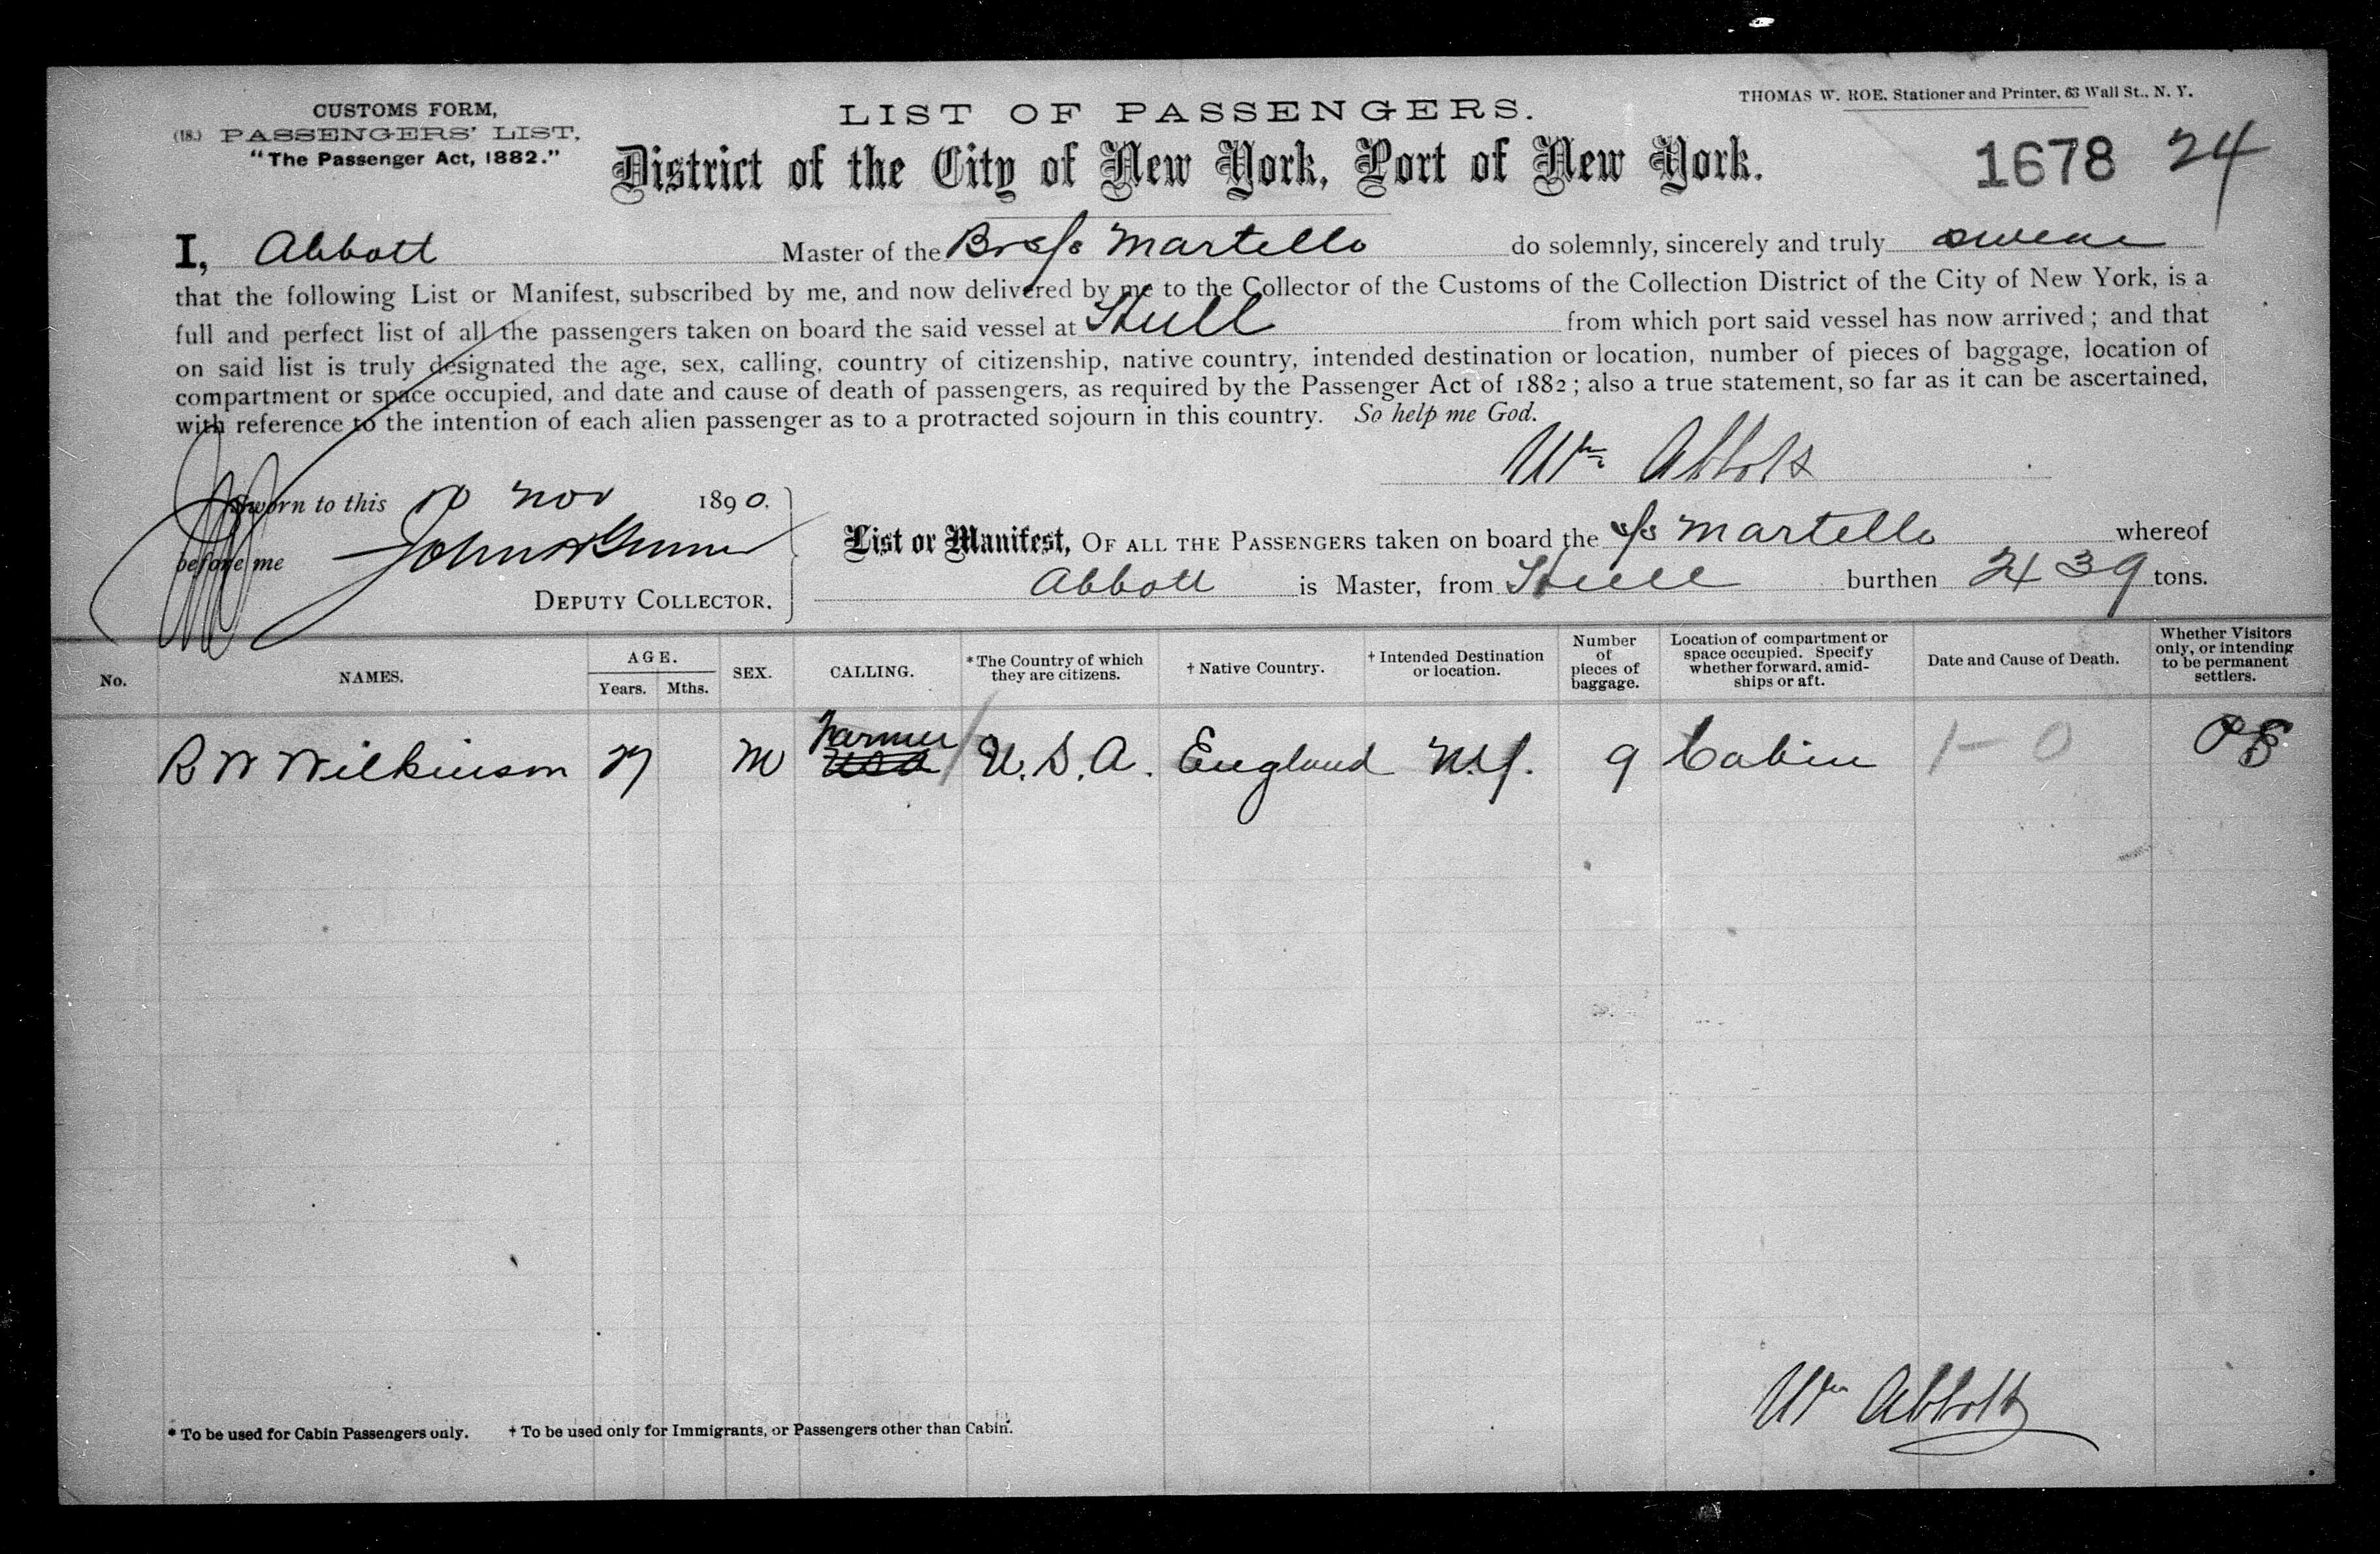 CUSTOMS FORM,
(18.) PASSENGERS' LIST,
"The Passenger Act, 1882."
LIST OF PASSENGERS.
THOMAS W. ROE, Stationer and Printer, 63 Wall St., N. Y.
District of the City of New York, Port of New York.
1678 24
I, Abbott Master of the Br s/s Martello do solemnly, sincerely and truly swear
that the following List or Manifest, subscribed by me, and now delivered by me to the Collector of the Customs of the Collection District of the City of New York, is a
full and perfect list of all the passengers taken on board the said vessel at Hull from which port said vessel has now arrived; and that
on said list is truly designated the age, sex, calling, country of citizenship, native country, intended destination or location, number of pieces of baggage, location of
compartment or space occupied, and date and cause of death of passengers, as required by the Passenger Act of 1882; also a true statement, so far as it can be ascertained,
with reference to the intention of each alien passenger as to a protracted sojourn in this country. So help me God.
Wm Abbott
Sworn to this 10 Nov 1890.
before me
DEPUTY COLLECTOR.
List or Manifest, OF ALL THE PASSENGERS taken on board the s/s Martello whereof
Abbott is Master, from Hull burthen 2439 tons.
No. NAMES. AGE. Years. Mths. SEX. CALLING. *The Country of which they are citizens. † Native Country. † Intended Destination or location. Number of pieces of baggage. Location of compartment or space occupied. Specify whether forward, amidships or aft. Date and Cause of Death. Whether Visitors only, or intending to be permanent settlers.
R W Wilkinson 27 M Farmer U.S.A. England N.Y. 9 Cabin 1-0 PS
Wm Abbott
* To be used for Cabin Passengers only. † To be used only for Immigrants, or Passengers other than Cabin.